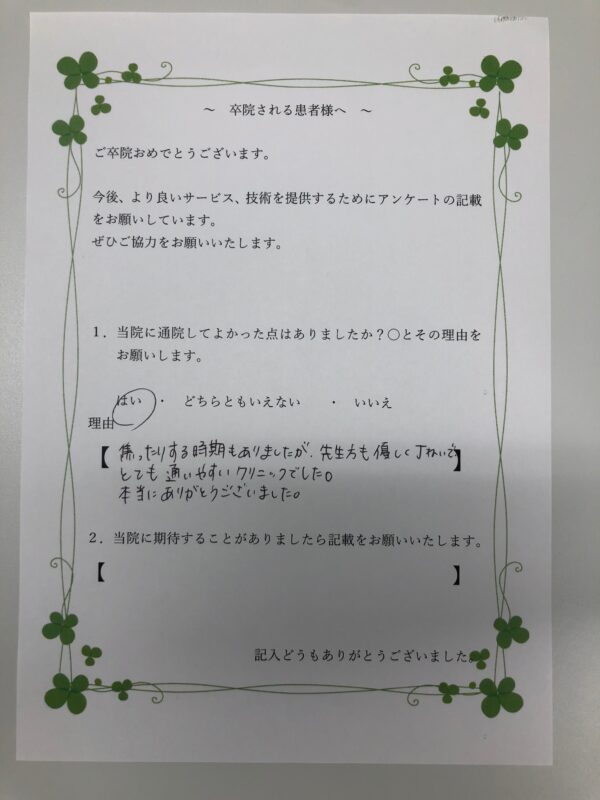 ～　卒院される患者様へ　～
ご卒院おめでとうございます。
今後、より良いサービス、技術を提供するためにアンケートの記載
をお願いしています。
ぜひご協力をお願いいたします。
１．当院に通院してよかった点はありましたか？〇とその理由を
お願いします。
はい　・　どちらともいえない　・　いいえ
理由
【焦ったりする時期もありましたが、先生方も優しく丁ねいで】
とても通いやすいクリニックでした。
本当にありがとうございました。
２．当院に期待することがありましたら記載をお願いいたします。
【　】
記入どうもありがとうございました。